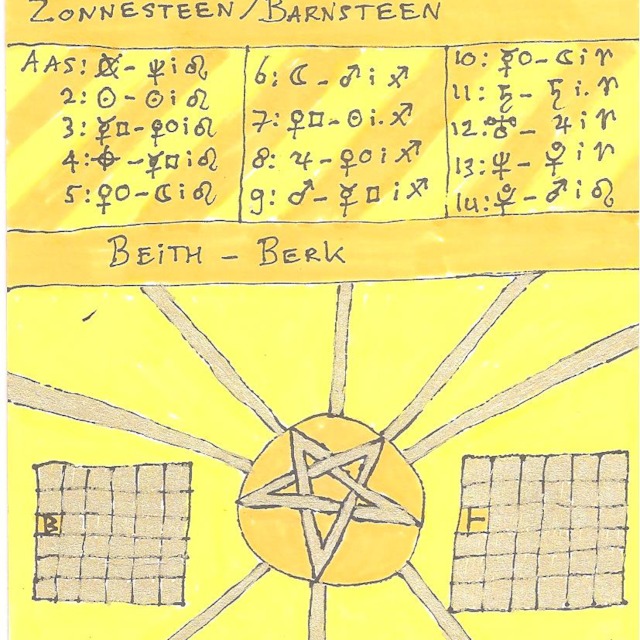 ZONNESTEEN/BARNSTEEN
AAS: - ♆ i ♌
2: ☉ - ☉ i ♌
3: ☿□ - ♀O i ♌
4: ⊕ - ☿□ i ♌
5: ♀O - ☾ i ♌
6: ☾ - ♂ i ♐
7: ♀□ - ☉ i. ♐
8: ♃ - ♀O i ♐
9: ♂ - ☿□ i ♐
10: ☿O - ☾ i ♈
11: ♄ - ♄ i. ♈
12: ♅ - ♃ i ♈
13: ♆ - ♀ i ♈
14: ♇ - ♂ i ♌
BEITH - BERK
B